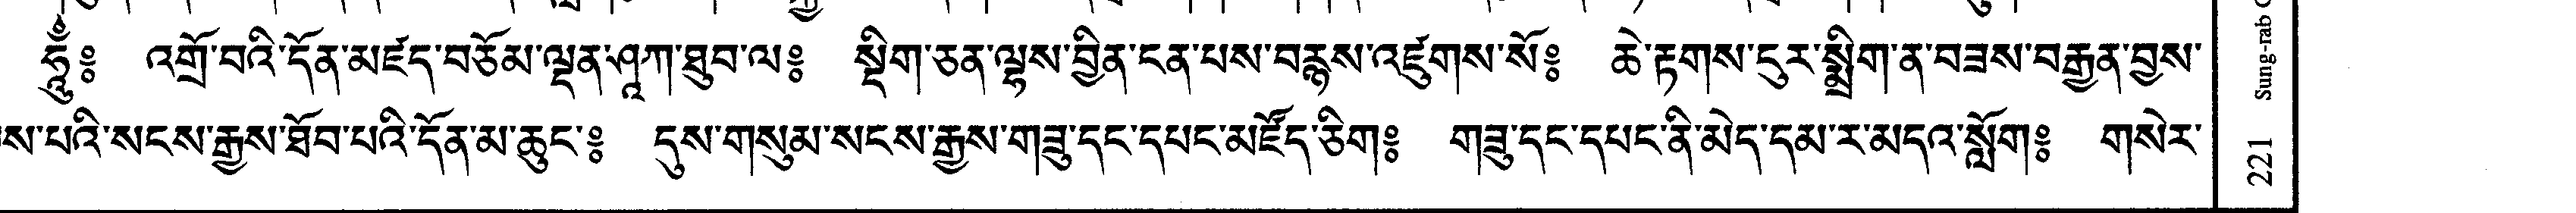 ཧཱུྃ༔ འགྲོ་བའི་དོན་མཛད་བཅོམ་ལྡན་ཤཱཀ་ཐུབ་ལ༔ སྡིག་ཅན་ལྷས་བྱིན་ངན་པས་བརྙས་འཛུགས་སོ༔ ཆེ་རྟགས་དུར་སྨྲིག་ན་བཟས་བརྒྱན་བྱས་
ས་པའི་སངས་རྒྱས་ཐོབ་པའི་དོན་མ་ཆུང་༔ དུས་གསུམ་སངས་རྒྱས་གཟུ་དང་དཔང་མཛོད་ཅིག༔ གཟུ་དང་དཔང་ནི་མེད་དམ་ར་མདའ་སློག༔ གསེར་
221 Sung-rab